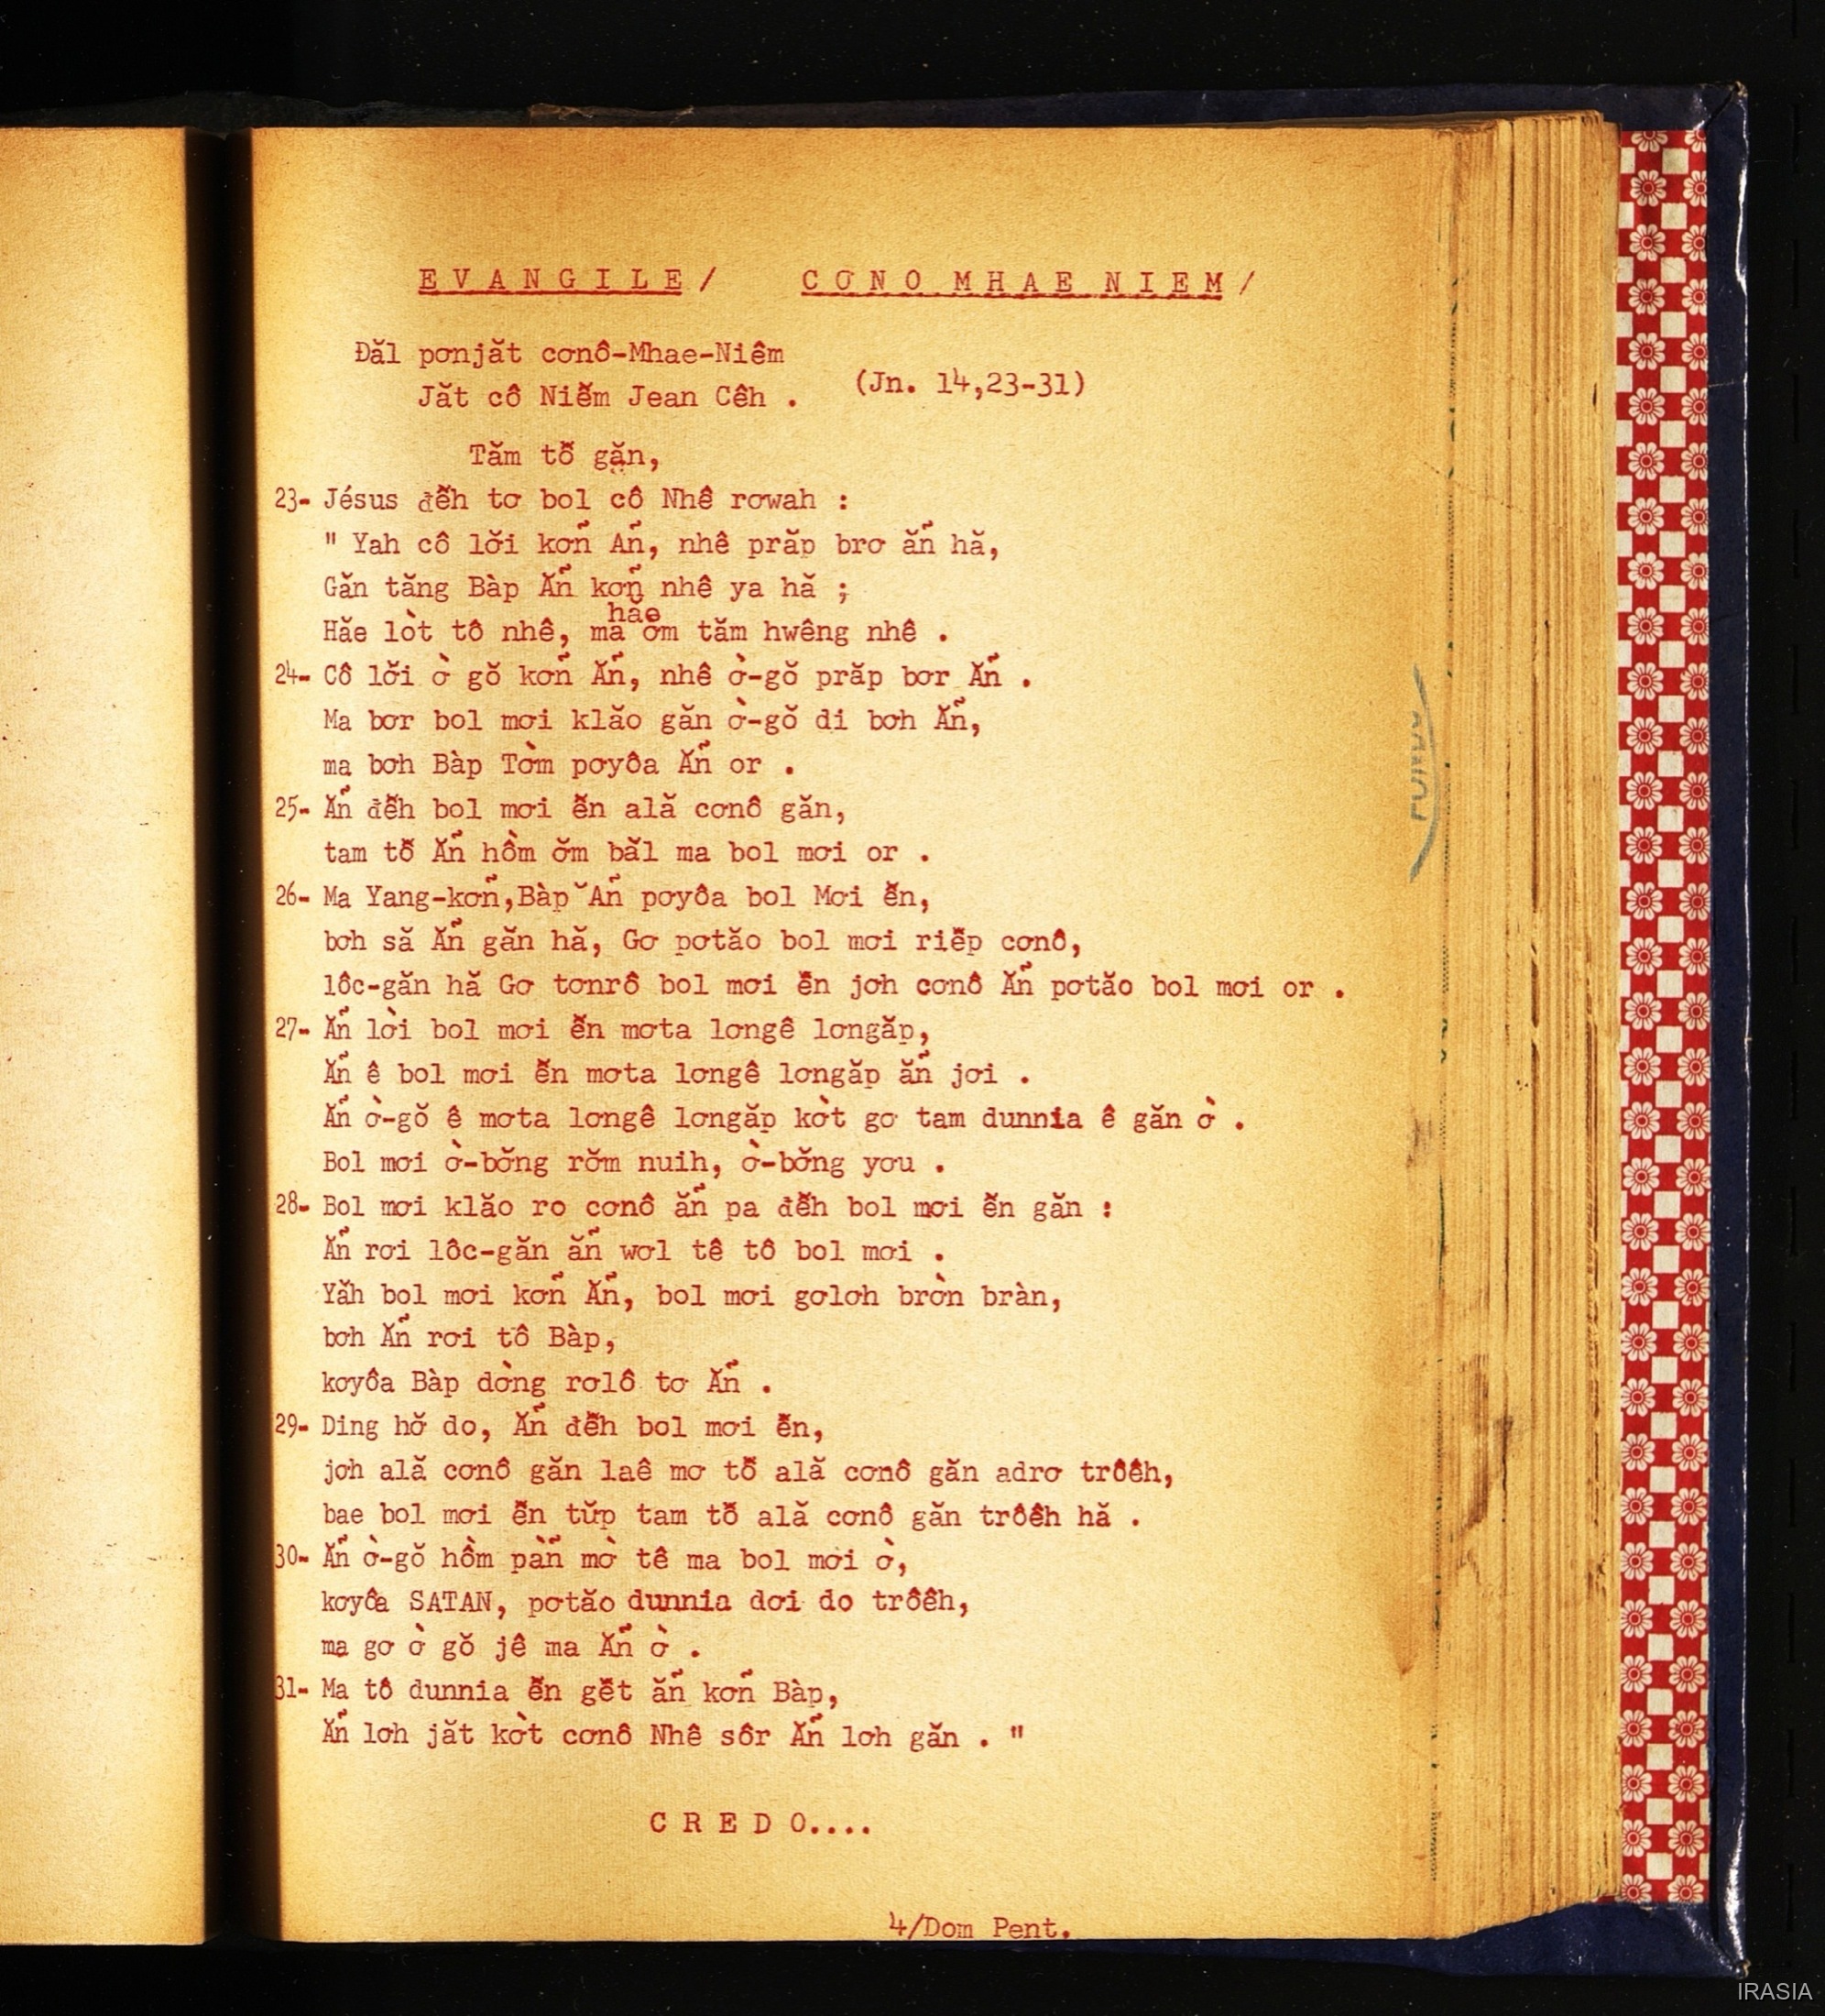 E V A N G I L E / C Ơ N O M H A E N I E M /
Đăl pơnjăt cơnô-Mhae-Niêm
Jăt cô Niễm Jean Cêh .
(Jn. 14,23-31)
Tăm tỗ gặn,
23- Jésus đễh tơ bol cô Nhê rơwah :
" Yah cô lơ̆i kơñ Añ, nhê prăp brơ ăñ hă,
Găn tăng Bàp Ăñ kơñ nhê ya hă ;
hăe
Hăe lòt tô nhê, ma ơ̆m tăm hwêng nhê .
24- Cô lơ̆i ờ gŏ kơñ Ăñ, nhê ờ-gŏ prăp bơr Ăñ .
Ma bơr bol mơi klăo găn ờ-gŏ di bơh Ăñ,
ma bơh Bàp Tờm pơyôa Ăñ or .
25- Ăñ đễh bol mơi ễn ală cơnô găn,
tam tỗ Ăñ hồm ơ̆m băl ma bol mơi or .
26- Ma Yang-kơñ,Bàp ˘Añ pơyôa bol Mơi ễn,
bơh să Ăñ găn hă, Gơ pơtăo bol mơi riễp cơnô,
lôc-găn hă Gơ tơnrô bol mơi ễn jơh cơnô Ăñ pơtăo bol mơi or .
27- Ăñ lời bol mơi ễn mơta lơngê lơngăp,
Ăñ ê bol mơi ễn mơta lơngê lơngăp ăñ jơi .
Ăñ ờ-gŏ ê mơta lơngê lơngăp kờt gơ tam dunnia ê găn ờ .
Bol mơi ờ-bơ̆ng rơ̆m nuih, ờ-bơ̆ng yơu .
28- Bol mơi klăo ro cơnô ăñ pa đễh bol mơi ễn găn :
Ăñ rơi lôc-găn ăñ wơl tê tô bol mơi .
Yăh bol mơi kơñ Ăñ, bol mơi gơlơh brờn bràn,
bơh Ăñ rơi tô Bàp,
kơyôa Bàp dờng rơlô tơ Ăñ .
29- Ding hơ̆ do, Ăñ đễh bol mơi ễn,
jơh ală cơnô găn laê mơ tỗ ală cơnô găn adrơ trôêh,
bae bol mơi ễn tư̆p tam tỗ ală cơnô găn trôêh hă .
30- Ăñ ờ-gŏ hồm pàñ mờ tê ma bol mơi ờ,
kơyôa SATAN, pơtăo dunnia dơi do trôêh,
ma gơ ờ gŏ jê ma Ăñ ờ .
31- Ma tô dunnia ễn gễt ăñ kơñ Bàp,
Ăñ lơh jăt kờt cơnô Nhê sôr Ăñ lơh găn . "
C R E D O....
4/Dom Pent.
IRASIA